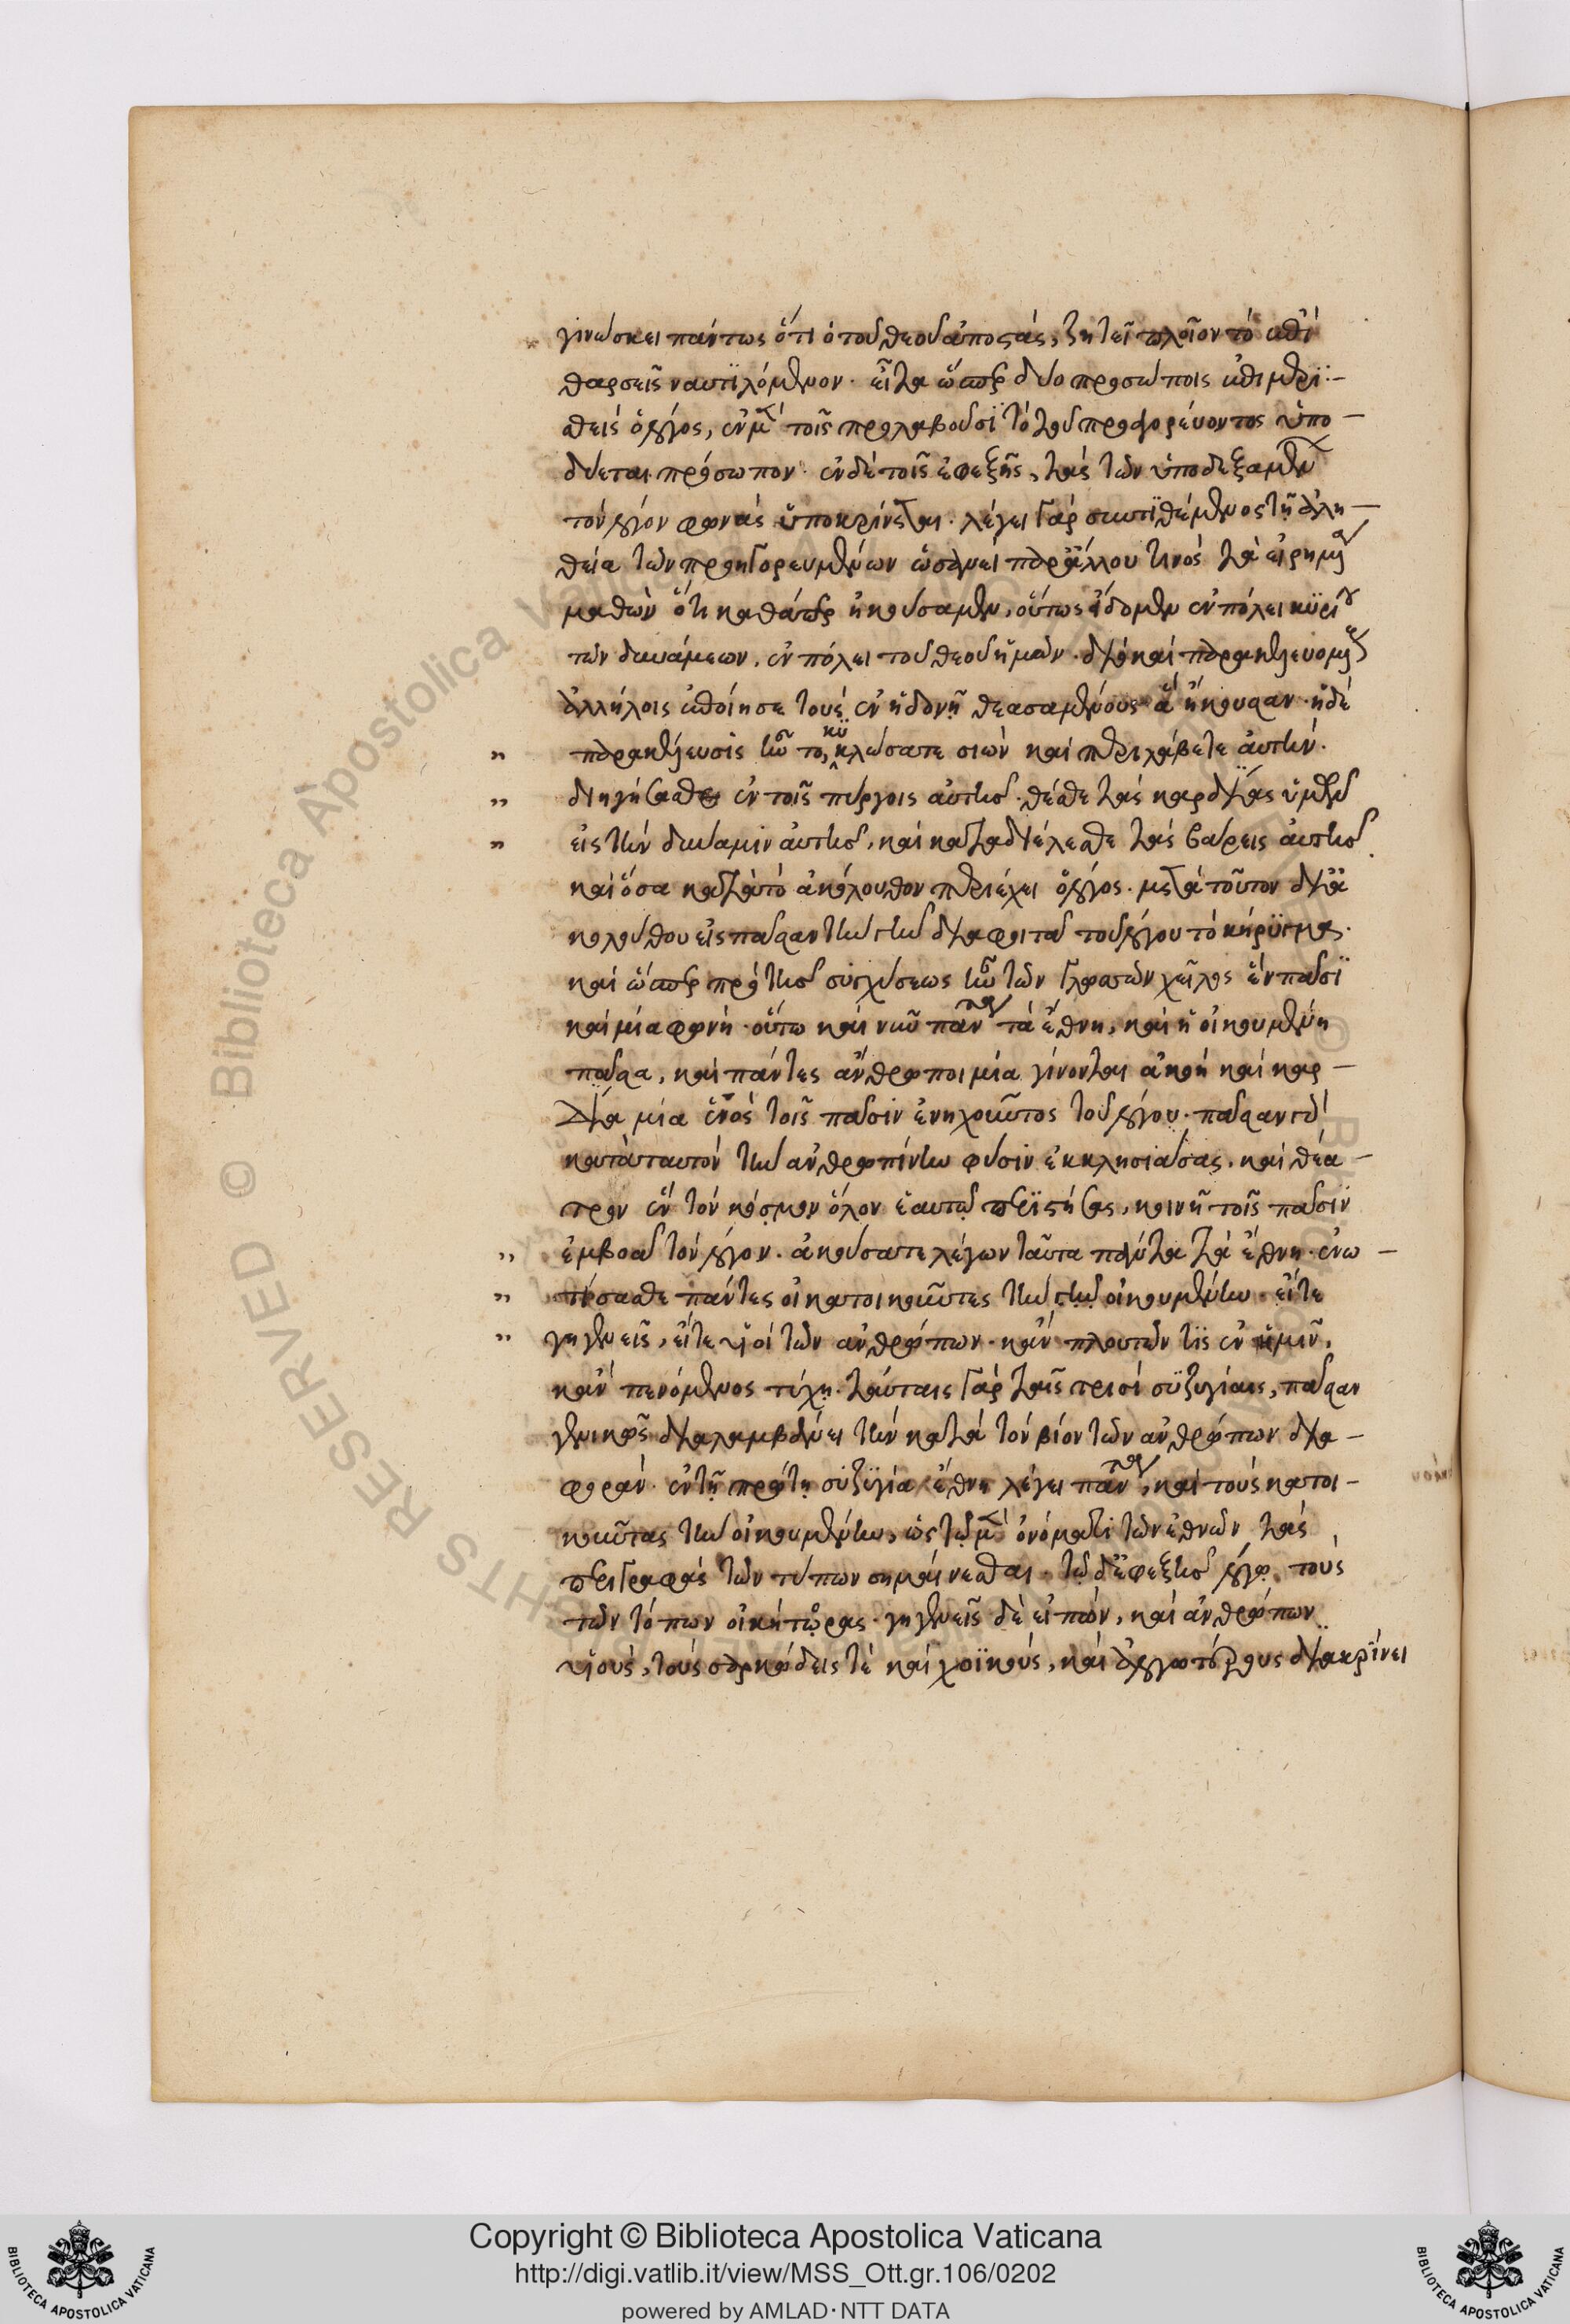 γινώσκει πάντως ὅτι ὁ τοῦ θεοῦ ἀποστάς, ζητεῖ πλοῖον τὸ ἐπὶ
θαρσεῖς ναυτιλόμενον. εἶτα ὥσπερ δύο προσώποις ἐπιμερι–
σθεὶς ὁ λόγος, ἐν μὲν τοῖς προλαβοῦσι τὸ τοῦ προαγορεύοντος ὑπο–
δύεται πρόσωπον. ἐν δὲ τοῖς ἐφεξῆς, τὰς τῶν ὑποδεξαμένων
τὸν λόγον φωνὰς ὑποκρίνεται. λέγει γὰρ συντιθέμενος τῇ ἀλη–
θείᾳ τῶν προηγορευμένων ὡσανεὶ παρ' ἄλλου τινὸς τὰ εἰρημένα
μαθὼν ὅτι καθάπερ ἠκούσαμεν, οὕτως εἴδομεν ἐν πόλει κυρίου
τῶν δυνάμεων, ἐν πόλει τοῦ θεοῦ ἡμῶν. διὸ καὶ παρακελευομένους
ἀλλήλοις ἐποίησε τοὺς ἐν ἡδονῇ θεασαμένους ἃ ἤκουσαν. ἡ δὲ
παρακέλευσις ἦν τὸ, κυκλώσατε σιὼν καὶ περιλάβετε αὐτήν.
διηγήσασθε ἐν τοῖς πύργοις αὐτῆς. θέσθε τὰς καρδίας ὑμῶν
εἰς τὴν δύναμιν αὐτῆς, καὶ καταδιέλεσθε τὰς βάρεις αὐτῆς.
καὶ ὅσα κατὰ τὸ ἀκόλουθον περιέχει ὁ λόγος. μετὰ τοῦτον δι' ἀ
κολούθου εἰς πᾶσαν τὴν γῆν διαφοιτᾷ τοῦ λόγου τὸ κήρυγμα.
καὶ ὥσπερ πρὸ τῆς συγχύσεως ἦν τῶν γλωσσῶν χεῖλος ἓν πᾶσι
καὶ μία φωνή. οὕτω καὶ νῦν πάντα τὰ ἔθνη, καὶ ἡ οἰκουμένη
πᾶσα, καὶ πάντες ἄνθρωποι μία γίνονται ἀκοὴ καὶ καρ–
δία μία ἑνὸς τοῖς πᾶσιν ἐνηχοῦντος τοῦ λόγου. πᾶσαν γὰρ
κατὰ ταυτὸν τὴν ἀνθρωπίνην φύσιν ἐκκλησιάσας, καὶ θέα–
τρον ἓν τὸν κόσμον ὅλον ἑαυτῷ περιστήσας, κοινῇ τοῖς πᾶσιν
ἐμβοᾷ τὸν λόγον. ἀκούσατε λέγων ταῦτα πάντα τὰ ἔθνη. ἐνω–
τίσασθε πάντες οἱ κατοικοῦντες τὴν γῆν οἰκουμένην. εἴτε
γηγενεῖς, εἴτε υἱοὶ τῶν ἀνθρώπων. κἂν πλουτῶν τις ἐν ἡμῖν,
κἂν πενόμενος τύχῃ. ταύταις γὰρ ταῖς τρισὶ συζυγίαις, πᾶσαν
γενικῶς διαλαμβάνει τὴν κατὰ τὸν βίον τῶν ἀνθρώπων δια–
φοράν. ἐν τῇ πρώτῃ συζυγίᾳ ἔθνη λέγει πάντα, καὶ τοὺς κατοι–
κοῦντας τὴν οἰκουμένην, ὡς τῷ μὲν ὀνόματι τῶν ἐθνῶν τὰς
περιγραφὰς τῶν τόπων σημαίνεσθαι. τῷ δ' ἐφεξῆς λόγῳ, τοὺς
τῶν τόπων οἰκήτορας. γηγενεῖς δὲ εἰπών, καὶ ἀνθρώπων
υἱούς, τοὺς σαρκώδεις τὲ καὶ χοϊκούς, καὶ ἀλογωτέρους διακρίνει
Copyright © Biblioteca Apostolica Vaticana
http://digi.vatlib.it/view/MSS_Ott.gr.106/0202
powered by AMLAD·NTT DATA